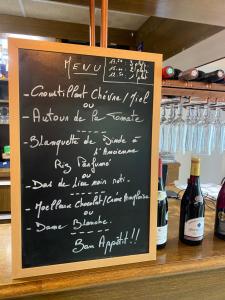 MENU
- Croustillant Chèvre / Miel
ou
- Autour de la Tomate
- Blanquette de Dinde à
l'Ancienne
Riz Parfumé
ou
- Dos de Lieu noir rôti -
- Moelleux Chocolat / Crème Anglaise
ou
- Dame Blanche.
Bon Appétit !!